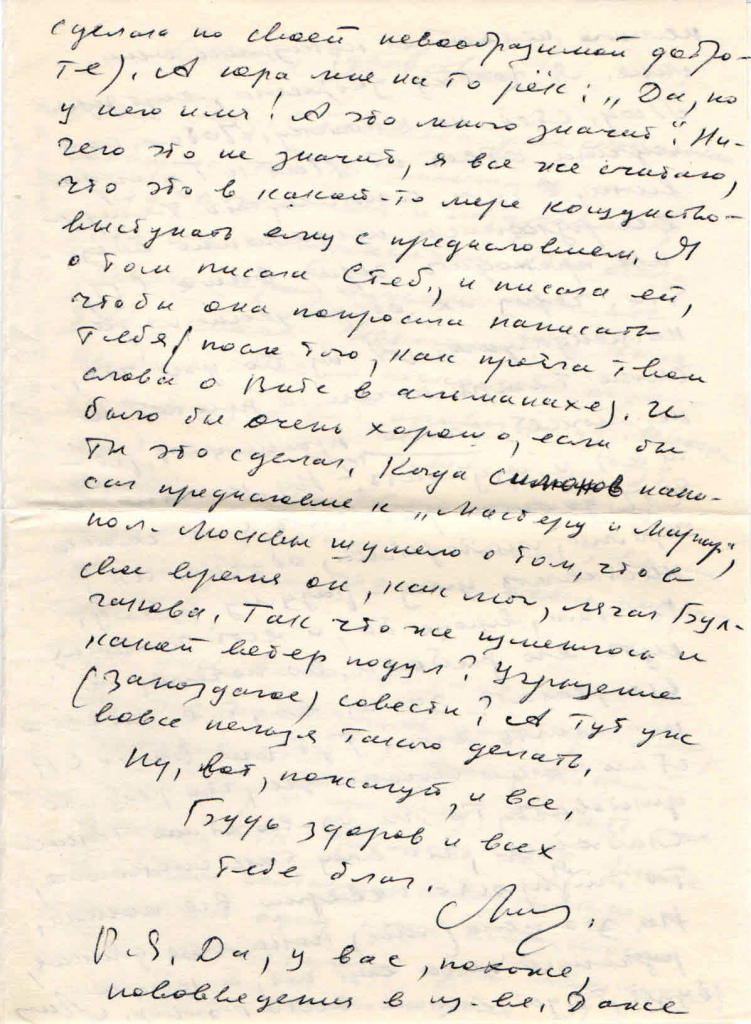 сделала по своей невообразимой добро-
те). А Юра мне на то рёк: „Да, но
у него имя! А это много значит". Ни-
чего это не значит, я все же считаю,
что это в какой-то мере кощунство -
выступать ему с предисловием. Я
о том писала Стеб., и писала ей,
чтобы она попросила написать
тебя (после того, как прочла твои
слова о Вите в альманахе). И
было бы очень хорошо, если бы
ты это сделал. Когда Симонов напи-
сал предисловие к „Мастеру и Маргар",
пол-Москвы шумело о том, что в
свое время он, как мог, лягал Бул-
гакова. Так что же изменилось и
какой ветер подул? Угрызение
(запоздалое) совести? А тут уж
вовсе нельзя такого делать.
Ну, вот, пожалуй, и все.
Будь здоров и всех
тебе благ.
P.S. Да, у вас, похоже,
нововведения в из-ве. Даже